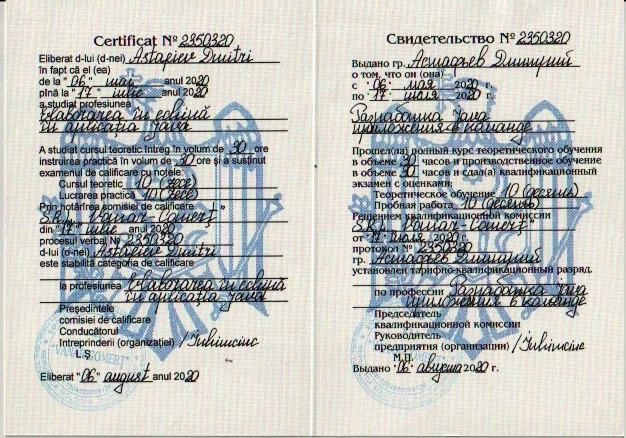 Certificat № 2350320
Eliberat d-lui (d-nei) Astafiev Dmitri
în fapt că el (ea)
de la "06" mai anul 2020
pînă la "17" iulie anul 2020
a studiat profesiunea
Elaborarea în echină
în aplicatia Java
A studiat cursul teoretic întreg în volum de 30 ore
instruirea practică în volum de 30 ore și a susținut
examenul de calificare cu notele:
Cursul teoretic 10 (zece)
Lucrarea practică 10 (zece)
Prin hotărîrea comisiei de calificare
S.R.L. "Vanar-Comerț"
din "17" iulie anul 2020
procesul verbal № 2350320
d-lui (d-nei) Astafiev Dmitri
este stabilită categoria de calificare
la profesiunea Elaborarea în echină
în aplicatia Java
Președintele
comisiei de calificare
Conducătorul
întreprinderii (organizației)
L.Ș.
Eliberat "06" august anul 2020
Свидетельство № 2350320
Выдано гр. Астафьев Дмитрий
о том, что он (она)
с "06" мая 2020 г.
по "17" июля 2020 г.
Разработка Java
приложения в команде
Прошел(ла) полный курс теоретического обучения
в объеме 30 часов и производственное обучение
в объеме 30 часов и сдал(а) квалификационный
экзамен с оценками:
Теоретическое обучение 10 (десять)
Пробная работа 10 (десять)
Решением квалификационной комиссии
S.R.L. "Vanar-Comerț"
от "17" июля 2020 г.
протокол № 2350320
гр. Астафьев Дмитрий
установлен тарифно-квалификационный разряд.
по профессии Разработка Java
приложения в команде
Председатель
квалификационной комиссии
Руководитель
предприятия (организации)
М.П.
Выдано "06" августа 2020 г.